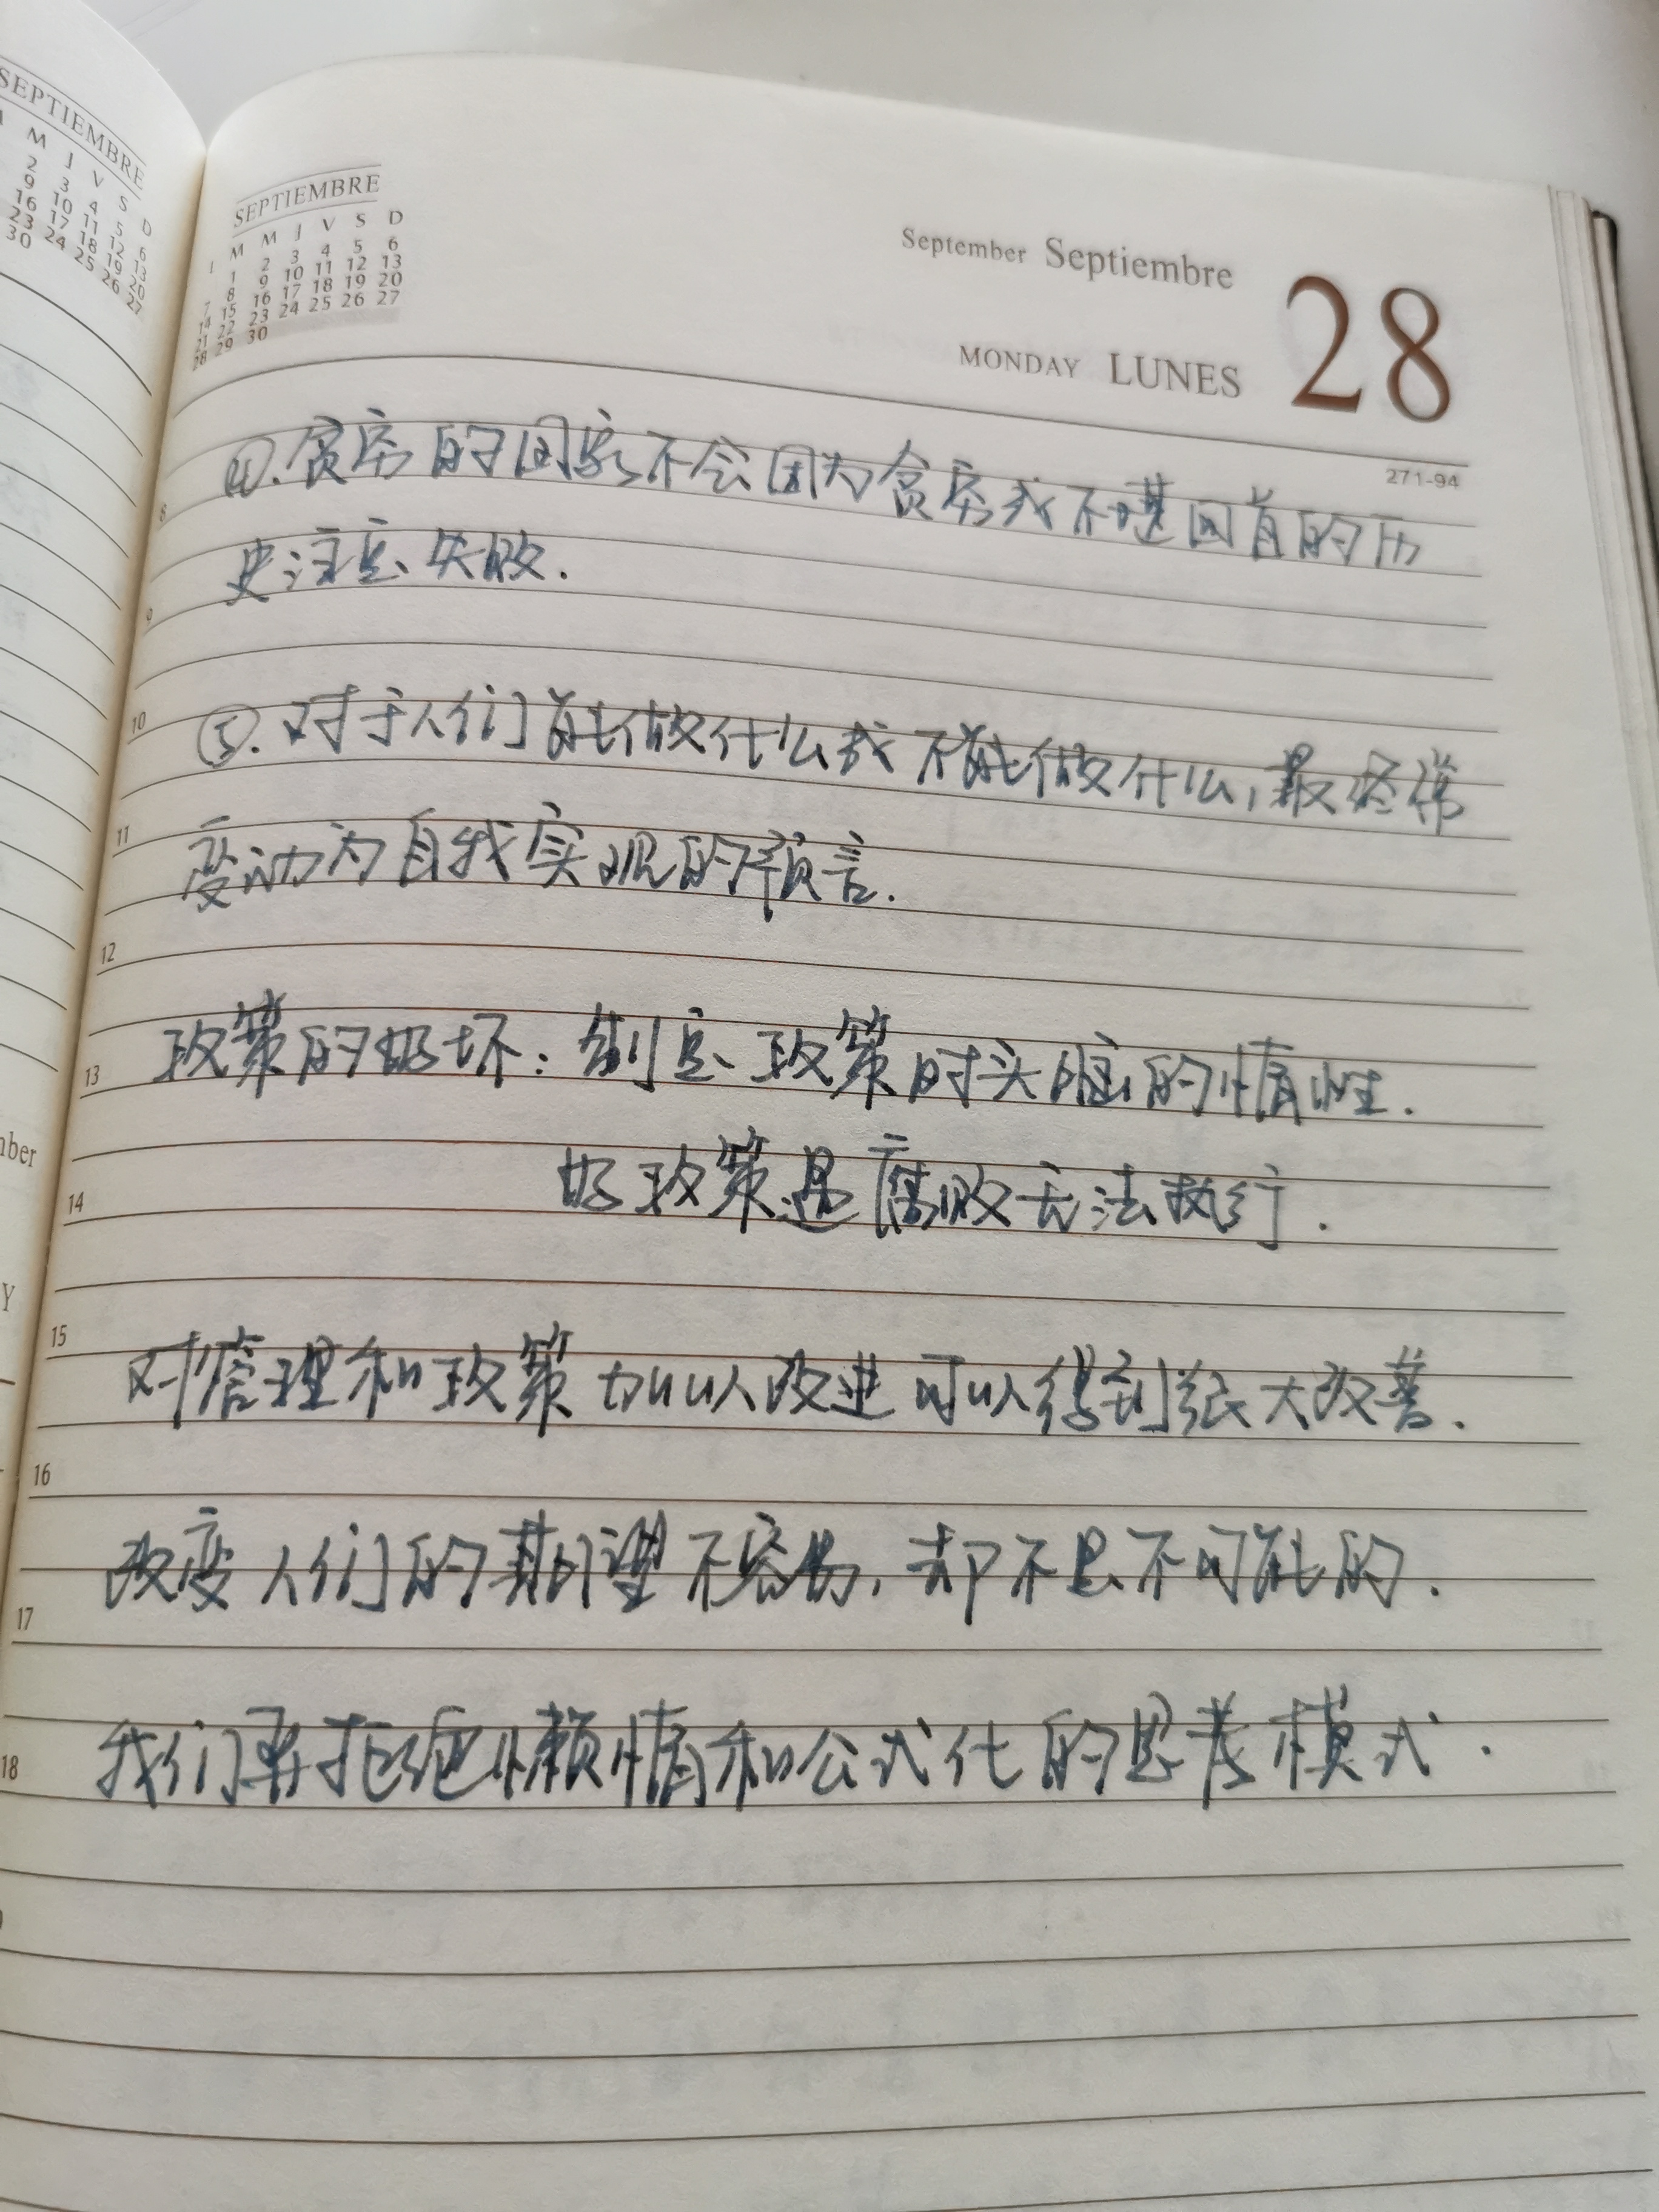 SEPTIEMBRE
M J V S D
2 3 4 5 6
9 10 11 12 13
16 17 18 19 20
23 24 25 26 27
30
SEPTIEMBRE
L M M J V S D
1 2 3 4 5 6
7 8 9 10 11 12 13
14 15 16 17 18 19 20
21 22 23 24 25 26 27
28 29 30
September Septiembre
MONDAY LUNES 28
271-94
④.贫穷的国家不会因为贫穷或不堪回首的历
8
史注定失败.
9
10
⑤.对于人们能做什么或不能做什么,最终常
变动为自我实现的预言.
11
12
政策的好坏:制定政策时头脑的惰性.
13
好政策是腐败无法执行.
14
15
对管理和政策加以改进可以得到很大改善.
16
改变人们的期望不容易,却不是不可能的.
17
我们要拒绝懒惰和公式化的思考模式.
18
mber
Y